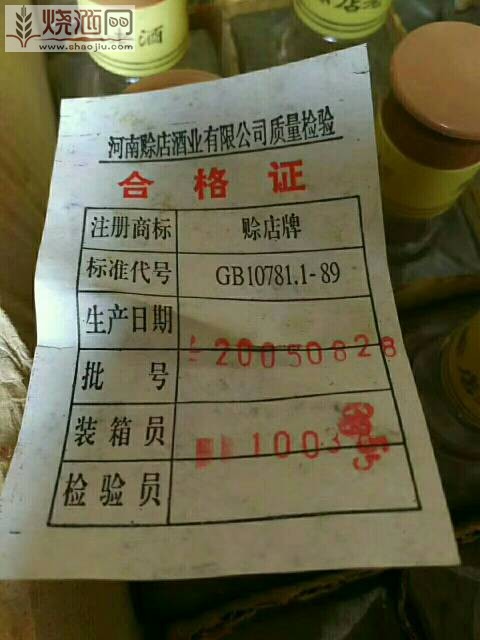 烧酒网
shaojiu.com
酒
河南赊店酒业有限公司质量检验
合格证
注册商标 赊店牌
标准代号 GB10781.1-89
生产日期
20050828
批号
装箱员
1003
检验员